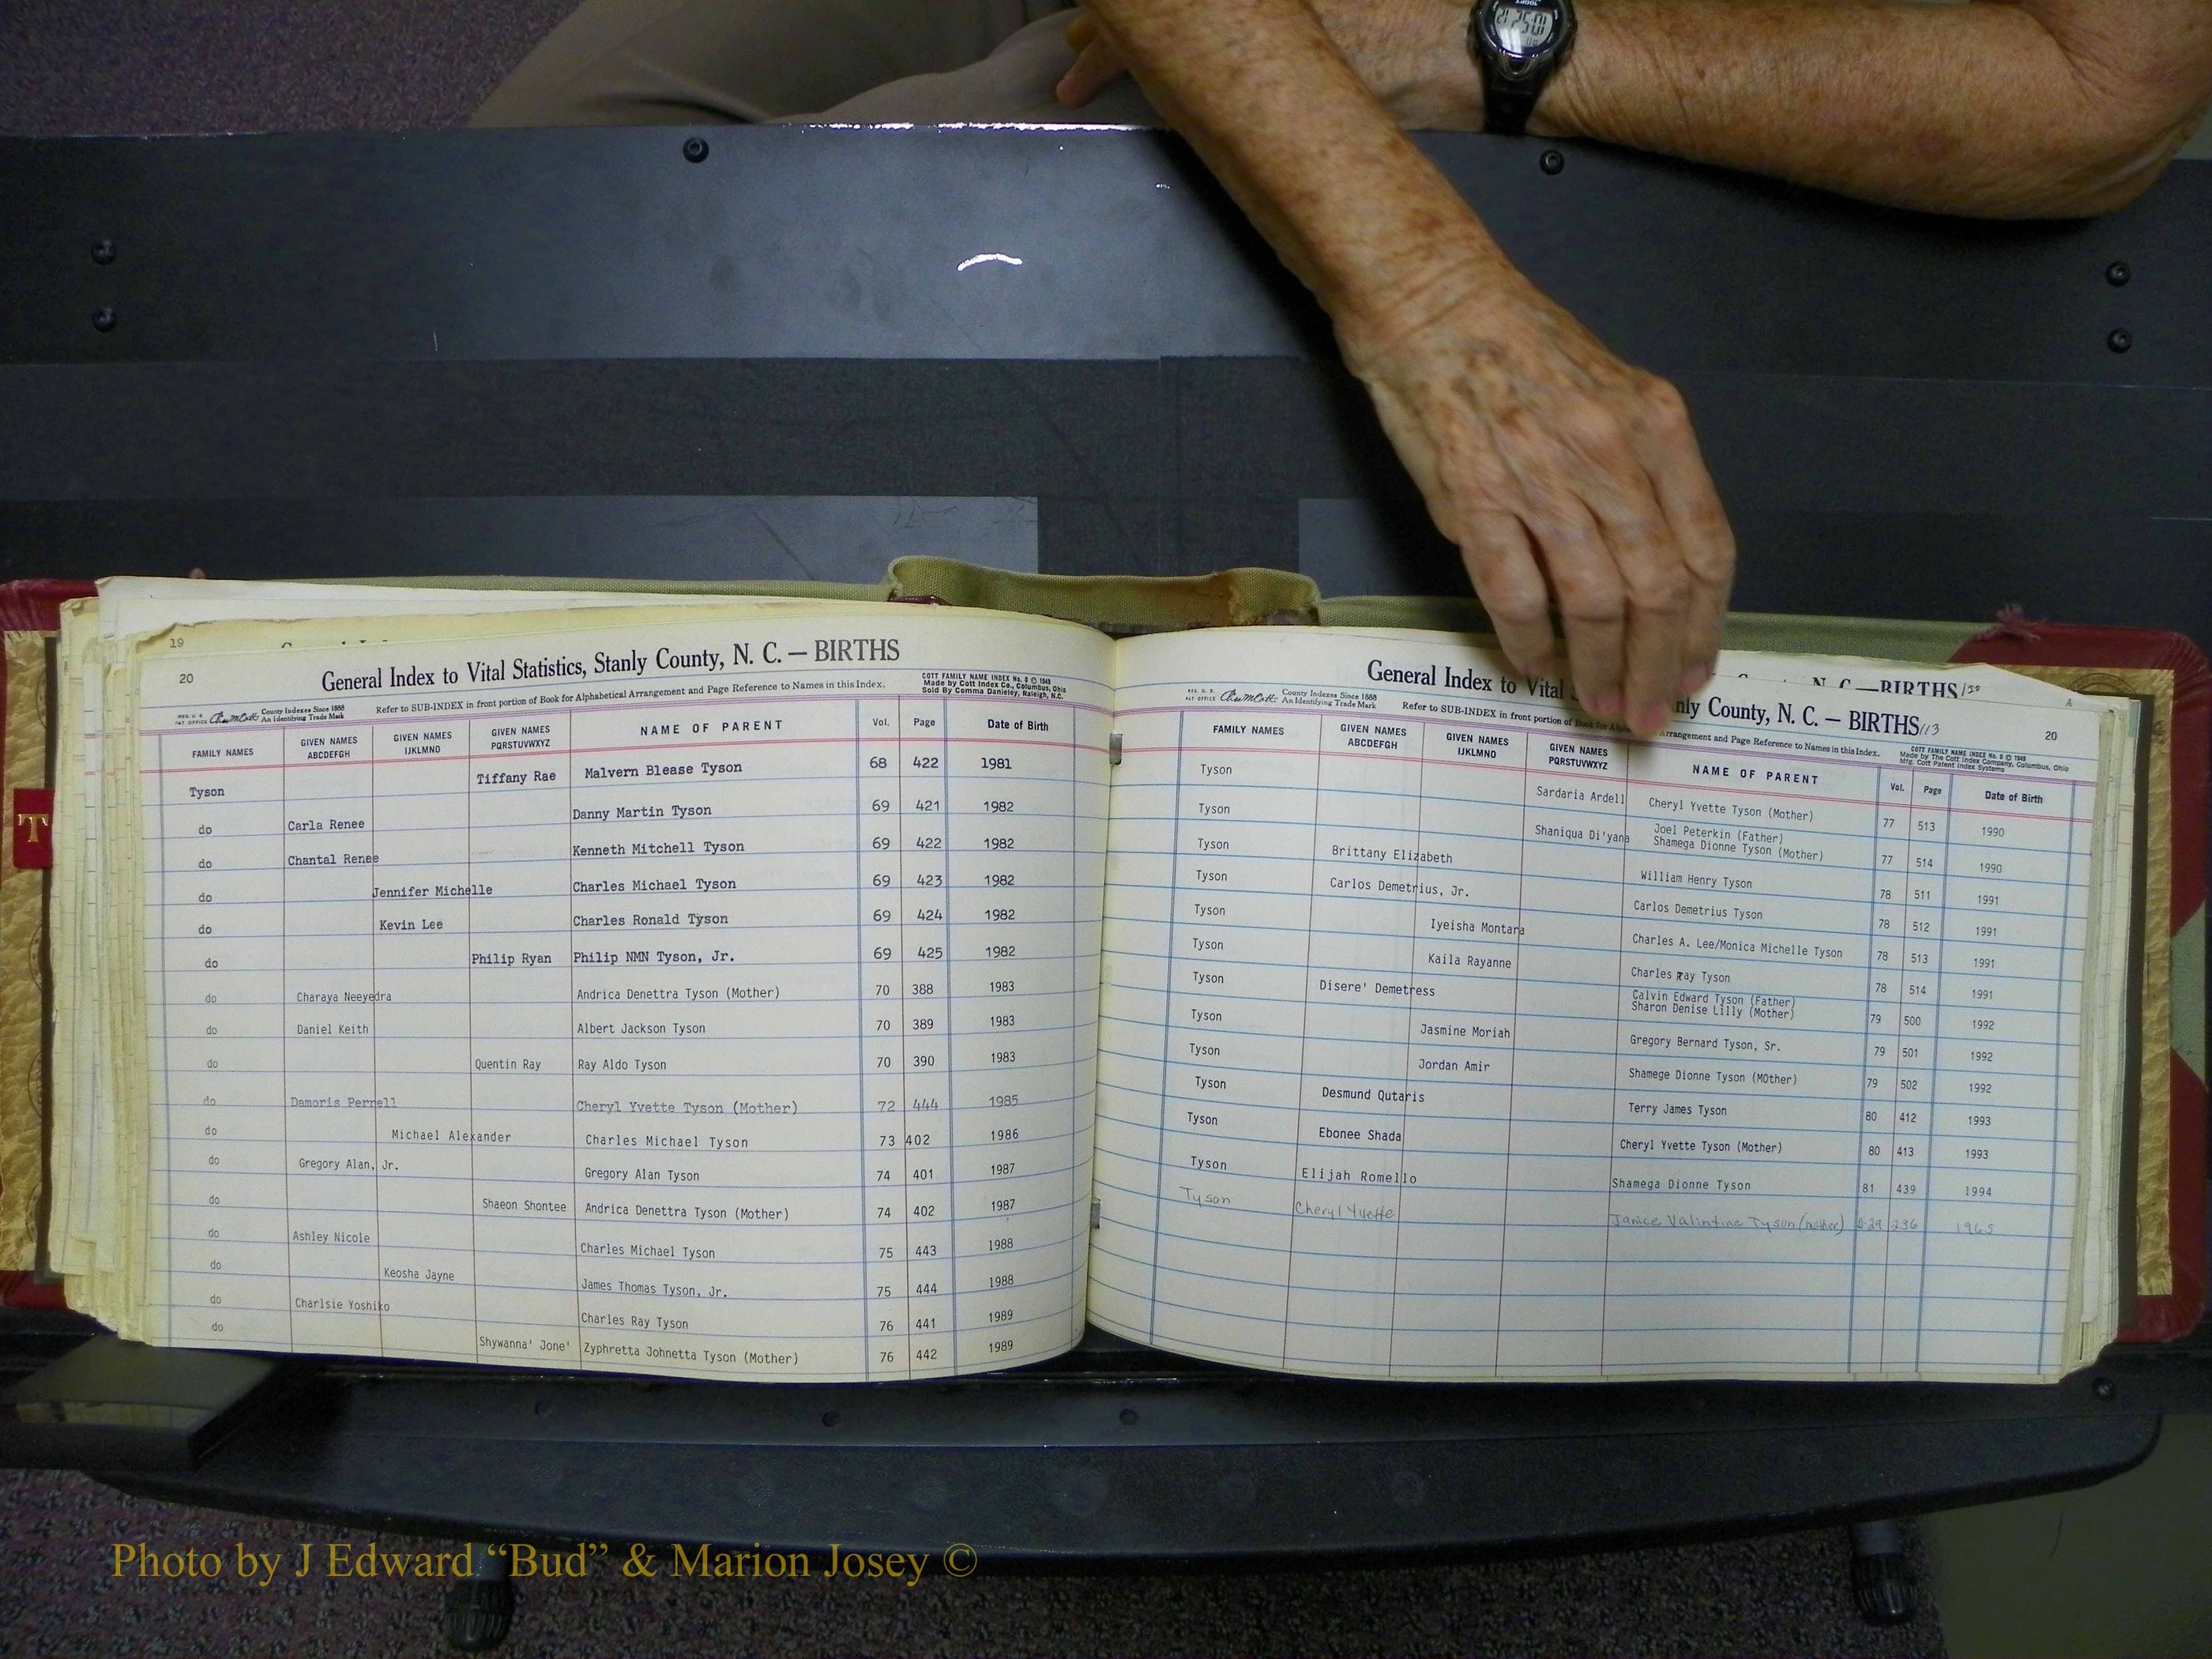 19
20
General Index to Vital Statistics, Stanly County, N. C. — BIRTHS
COTT FAMILY NAME INDEX No. 8 © 1949
Made by Cott Index Co., Columbus, Ohio
Sold By Comma Danieley, Raleigh, N.C.
REG. U. S. PAT OFFICE County Indexes Since 1888
An Identifying Trade Mark
Refer to SUB-INDEX in front portion of Book for Alphabetical Arrangement and Page Reference to Names in this Index.
FAMILY NAMES GIVEN NAMES ABCDEFGH GIVEN NAMES IJKLMNO GIVEN NAMES PQRSTUVWXYZ NAME OF PARENT Vol. Page Date of Birth
Tyson Tiffany Rae Malvern Blease Tyson 68 422 1981
do Carla Renee Danny Martin Tyson 69 421 1982
do Chantal Renee Kenneth Mitchell Tyson 69 422 1982
do Jennifer Michelle Charles Michael Tyson 69 423 1982
do Kevin Lee Charles Ronald Tyson 69 424 1982
do Philip Ryan Philip NMN Tyson, Jr. 69 425 1982
do Charaya Neeyedra Andrica Denettra Tyson (Mother) 70 388 1983
do Daniel Keith Albert Jackson Tyson 70 389 1983
do Quentin Ray Ray Aldo Tyson 70 390 1983
do Damoris Perrell Cheryl Yvette Tyson (Mother) 72 444 1985
do Michael Alexander Charles Michael Tyson 73 402 1986
do Gregory Alan, Jr. Gregory Alan Tyson 74 401 1987
do Shaeon Shontee Andrica Denettra Tyson (Mother) 74 402 1987
do Ashley Nicole Charles Michael Tyson 75 443 1988
do Keosha Jayne James Thomas Tyson, Jr. 75 444 1988
do Charlsie Yoshiko Charles Ray Tyson 76 441 1989
do Shywanna' Jone' Zyphretta Johnetta Tyson (Mother) 76 442 1989
T
N. C.—BIRTHS/20
A
General Index to Vital nly County, N. C. — BIRTHS/113
20
REG. U. S. PAT OFFICE County Indexes Since 1888
An Identifying Trade Mark
Refer to SUB-INDEX in front portion of Book for Arrangement and Page Reference to Names in this Index.
COTT FAMILY NAME INDEX No. 8 © 1949
Made by The Cott Index Company, Columbus, Ohio
Mfg. Cott Patent Index Systems
FAMILY NAMES GIVEN NAMES ABCDEFGH GIVEN NAMES IJKLMNO GIVEN NAMES PQRSTUVWXYZ NAME OF PARENT Vol. Page Date of Birth
Tyson Sardaria Ardell Cheryl Yvette Tyson (Mother) 77 513 1990
Tyson Shaniqua Di'yana Joel Peterkin (Father)
Shamega Dionne Tyson (Mother) 77 514 1990
Tyson Brittany Elizabeth William Henry Tyson 78 511 1991
Tyson Carlos Demetrius, Jr. Carlos Demetrius Tyson 78 512 1991
Tyson Iyeisha Montara Charles A. Lee/Monica Michelle Tyson 78 513 1991
Tyson Kaila Rayanne Charles Ray Tyson 78 514 1991
Tyson Disere' Demetress Calvin Edward Tyson (Father)
Sharon Denise Lilly (Mother) 79 500 1992
Tyson Jasmine Moriah Gregory Bernard Tyson, Sr. 79 501 1992
Tyson Jordan Amir Shamege Dionne Tyson (MOther) 79 502 1992
Tyson Desmund Qutaris Terry James Tyson 80 412 1993
Tyson Ebonee Shada Cheryl Yvette Tyson (Mother) 80 413 1993
Tyson Elijah Romello Shamega Dionne Tyson 81 439 1994
Tyson Cheryl Yvette Janice Valintine Tyson (mother) 236 1965
Photo by J Edward “Bud” & Marion Josey ©